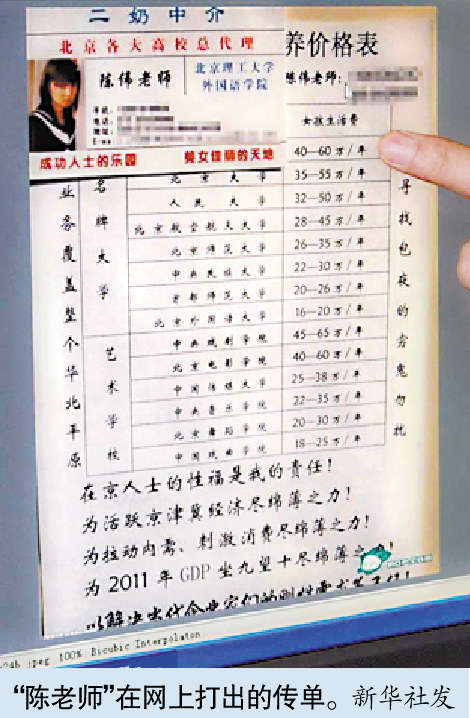 二奶中介
北京各大高校总代理
陈伟老师
北京理工大学
外国语学院
手机:
电话:
地址:
成功人士的乐园
美女佳丽的天地
养价格表
陈伟老师:
女孩生活费
40—60 万/年
北京大学 35—55 万/年
人民大学 32—50 万/年
北京航空航天大学 28—45 万/年
北京师范大学 26—35 万/年
中央民族大学 22—30 万/年
首都师范大学 20—26 万/年
北京外国语大学 16—20 万/年
中央戏剧学院 45—65 万/年
北京电影学院 40—60 万/年
中国传媒大学 25—38 万/年
中央音乐学院 22—35 万/年
北京舞蹈学院 20—30 万/年
中国戏曲学院 18—25 万/年
名牌大学
艺术学校
业务覆盖整个华北平原
寻找包夜的穷鬼勿扰
在京人士的性福是我的责任!
为活跃京津冀经济尽绵薄之力!
为拉动内需、刺激消费尽绵薄之力!
为 2011 年 GDP 坐九望十尽绵薄之力!
24b jpeg 100% Bicubic Interpolaton
“陈老师”在网上打出的传单。新华社发